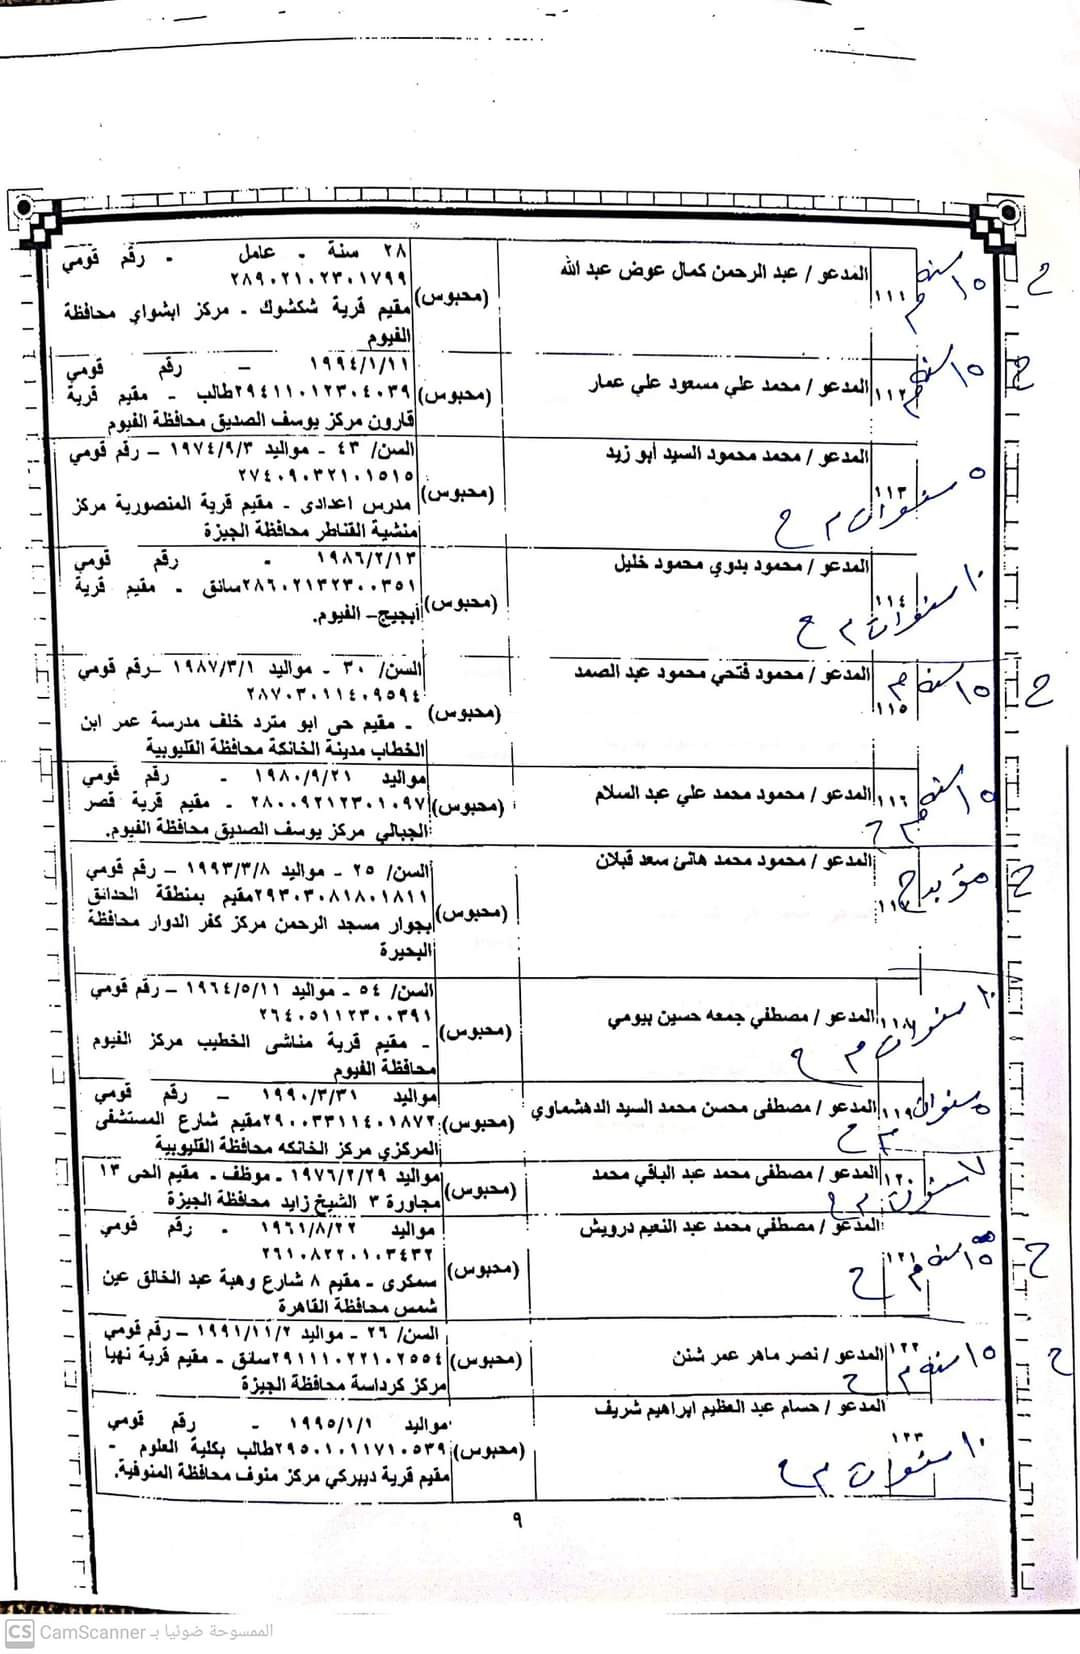 ١١١
المدعو / عبد الرحمن كمال عوض عبد الله
(محبوس)
٢٨ سنة - عامل - رقم قومي
٢٨٩٠٢١٠٢٣٠١٧٩٩
مقيم قرية شكشوك - مركز ابشواي محافظة
الفيوم
١٥ سنة م
ح
١١٢
المدعو / محمد علي مسعود علي عمار
(محبوس)
١٩٩٤/١/١١ - رقم قومي
٢٩٤١١٠١٢٣٠٤٠٣٩طالب - مقيم قرية
قارون مركز يوسف الصديق محافظة الفيوم
١٥ سنة م
ح
١١٣
المدعو / محمد محمود السيد أبو زيد
(محبوس)
السن/ ٤٣ - مواليد ١٩٧٤/٩/٣ – رقم قومي
٢٧٤٠٩٠٣٢١٠١٥١٥
مدرس اعدادى - مقيم قرية المنصورية مركز
منشية القناطر محافظة الجيزة
٥ سنوات م ح
١١٤
المدعو / محمود بدوي محمود خليل
(محبوس)
١٩٨٦/٢/١٣ - رقم قومي
٢٨٦٠٢١٣٢٣٠٠٣٥١سائق - مقيم قرية
أبجيج– الفيوم.
١٠ سنوات م ح
١١٥
المدعو / محمود فتحي محمود عبد الصمد
(محبوس)
السن/ ٣٠ - مواليد ١٩٨٧/٣/١ –رقم قومي
٢٨٧٠٣٠١١٤٠٩٥٩٤
- مقيم حى ابو مترد خلف مدرسة عمر ابن
الخطاب مدينة الخانكة محافظة القليوبية
١٥ سنة م
ح
١١٦
المدعو / محمود محمد علي عبد السلام
(محبوس)
مواليد ١٩٨٠/٩/٢١ - رقم قومي
٢٨٠٠٩٢١٢٣٠١٠٩٧ - مقيم قرية قصر
الجبالي مركز يوسف الصديق محافظة الفيوم.
١٥ سنة م ح
١١٧
المدعو / محمود محمد هانئ سعد قبلان
(محبوس)
السن/ ٢٥ - مواليد ١٩٩٣/٣/٨ – رقم قومي
٢٩٣٠٣٠٨١٨٠١٨١١مقيم بمنطقة الحدائق
بجوار مسجد الرحمن مركز كفر الدوار محافظة
البحيرة
مؤبد ح
ح
١١٨
المدعو / مصطفي جمعه حسين بيومي
(محبوس)
السن/ ٥٤ - مواليد ١٩٦٤/٥/١١ – رقم قومي
٢٦٤٠٥١١٢٣٠٠٣٩١
- مقيم قرية مناشى الخطيب مركز الفيوم
محافظة الفيوم
١٠ سنوات م ح
١١٩
المدعو / مصطفى محسن محمد السيد الدهشماوي
(محبوس)
مواليد ١٩٩٠/٣/٣١ – رقم قومي
٢٩٠٠٣٣١١٤٠١٨٧٢مقيم شارع المستشفى
المركزي مركز الخانكه محافظة القليوبية
٥ سنوات م ح
١٢٠
المدعو / مصطفى محمد عبد الباقي محمد
(محبوس)
مواليد ١٩٧٦/٢/٢٩ - موظف - مقيم الحى ١٣
مجاورة ٣ الشيخ زايد محافظة الجيزة
٧ سنوات م ح
١٢١
المدعو / مصطفي محمد عبد النعيم درويش
(محبوس)
مواليد ١٩٦١/٨/٢٢ - رقم قومي
٢٦١٠٨٢٢٠١٠٣٤٣٢
سمكرى - مقيم ٨ شارع وهبة عبد الخالق عين
شمس محافظة القاهرة
١٥ سنة م ح
ح
١٢٢
المدعو / نصر ماهر عمر شنن
(محبوس)
السن/ ٢٦ - مواليد ١٩٩١/١١/٢ – رقم قومي
٢٩١١١٠٢٢١٠٢٥٥٤سائق - مقيم قرية نهيا
مركز كرداسة محافظة الجيزة
١٥ سنة م ح
ح
١٢٣
المدعو / حسام عبد العظيم ابراهيم شريف
(محبوس)
مواليد ١٩٩٥/١/١ - رقم قومي
٢٩٥٠١٠١١٧١٠٥٣٩طالب بكلية العلوم -
مقيم قرية ديبركي مركز منوف محافظة المنوفية.
١٠ سنوات م ح
٩
CS CamScanner الممسوحة ضوئيا بـ